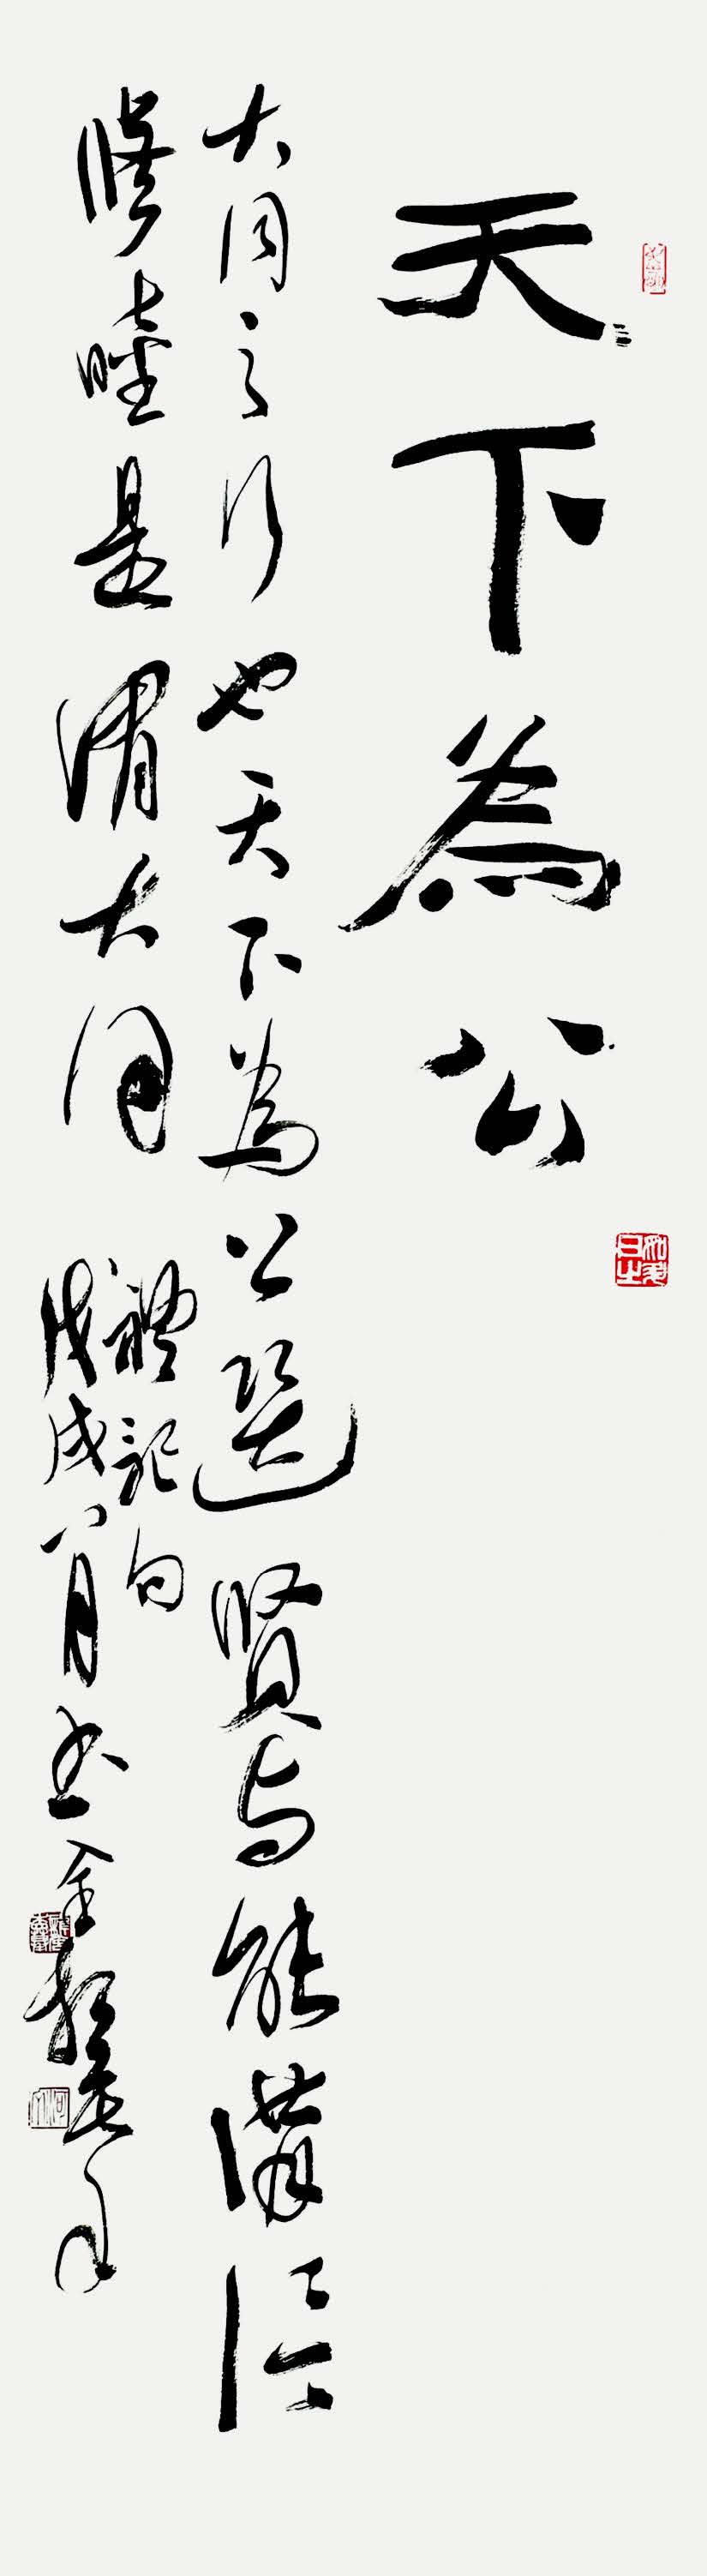 天下為公
大同之行也天下為公選賢与能講信
修睦是謂大同
禮記句
戊戌八月书